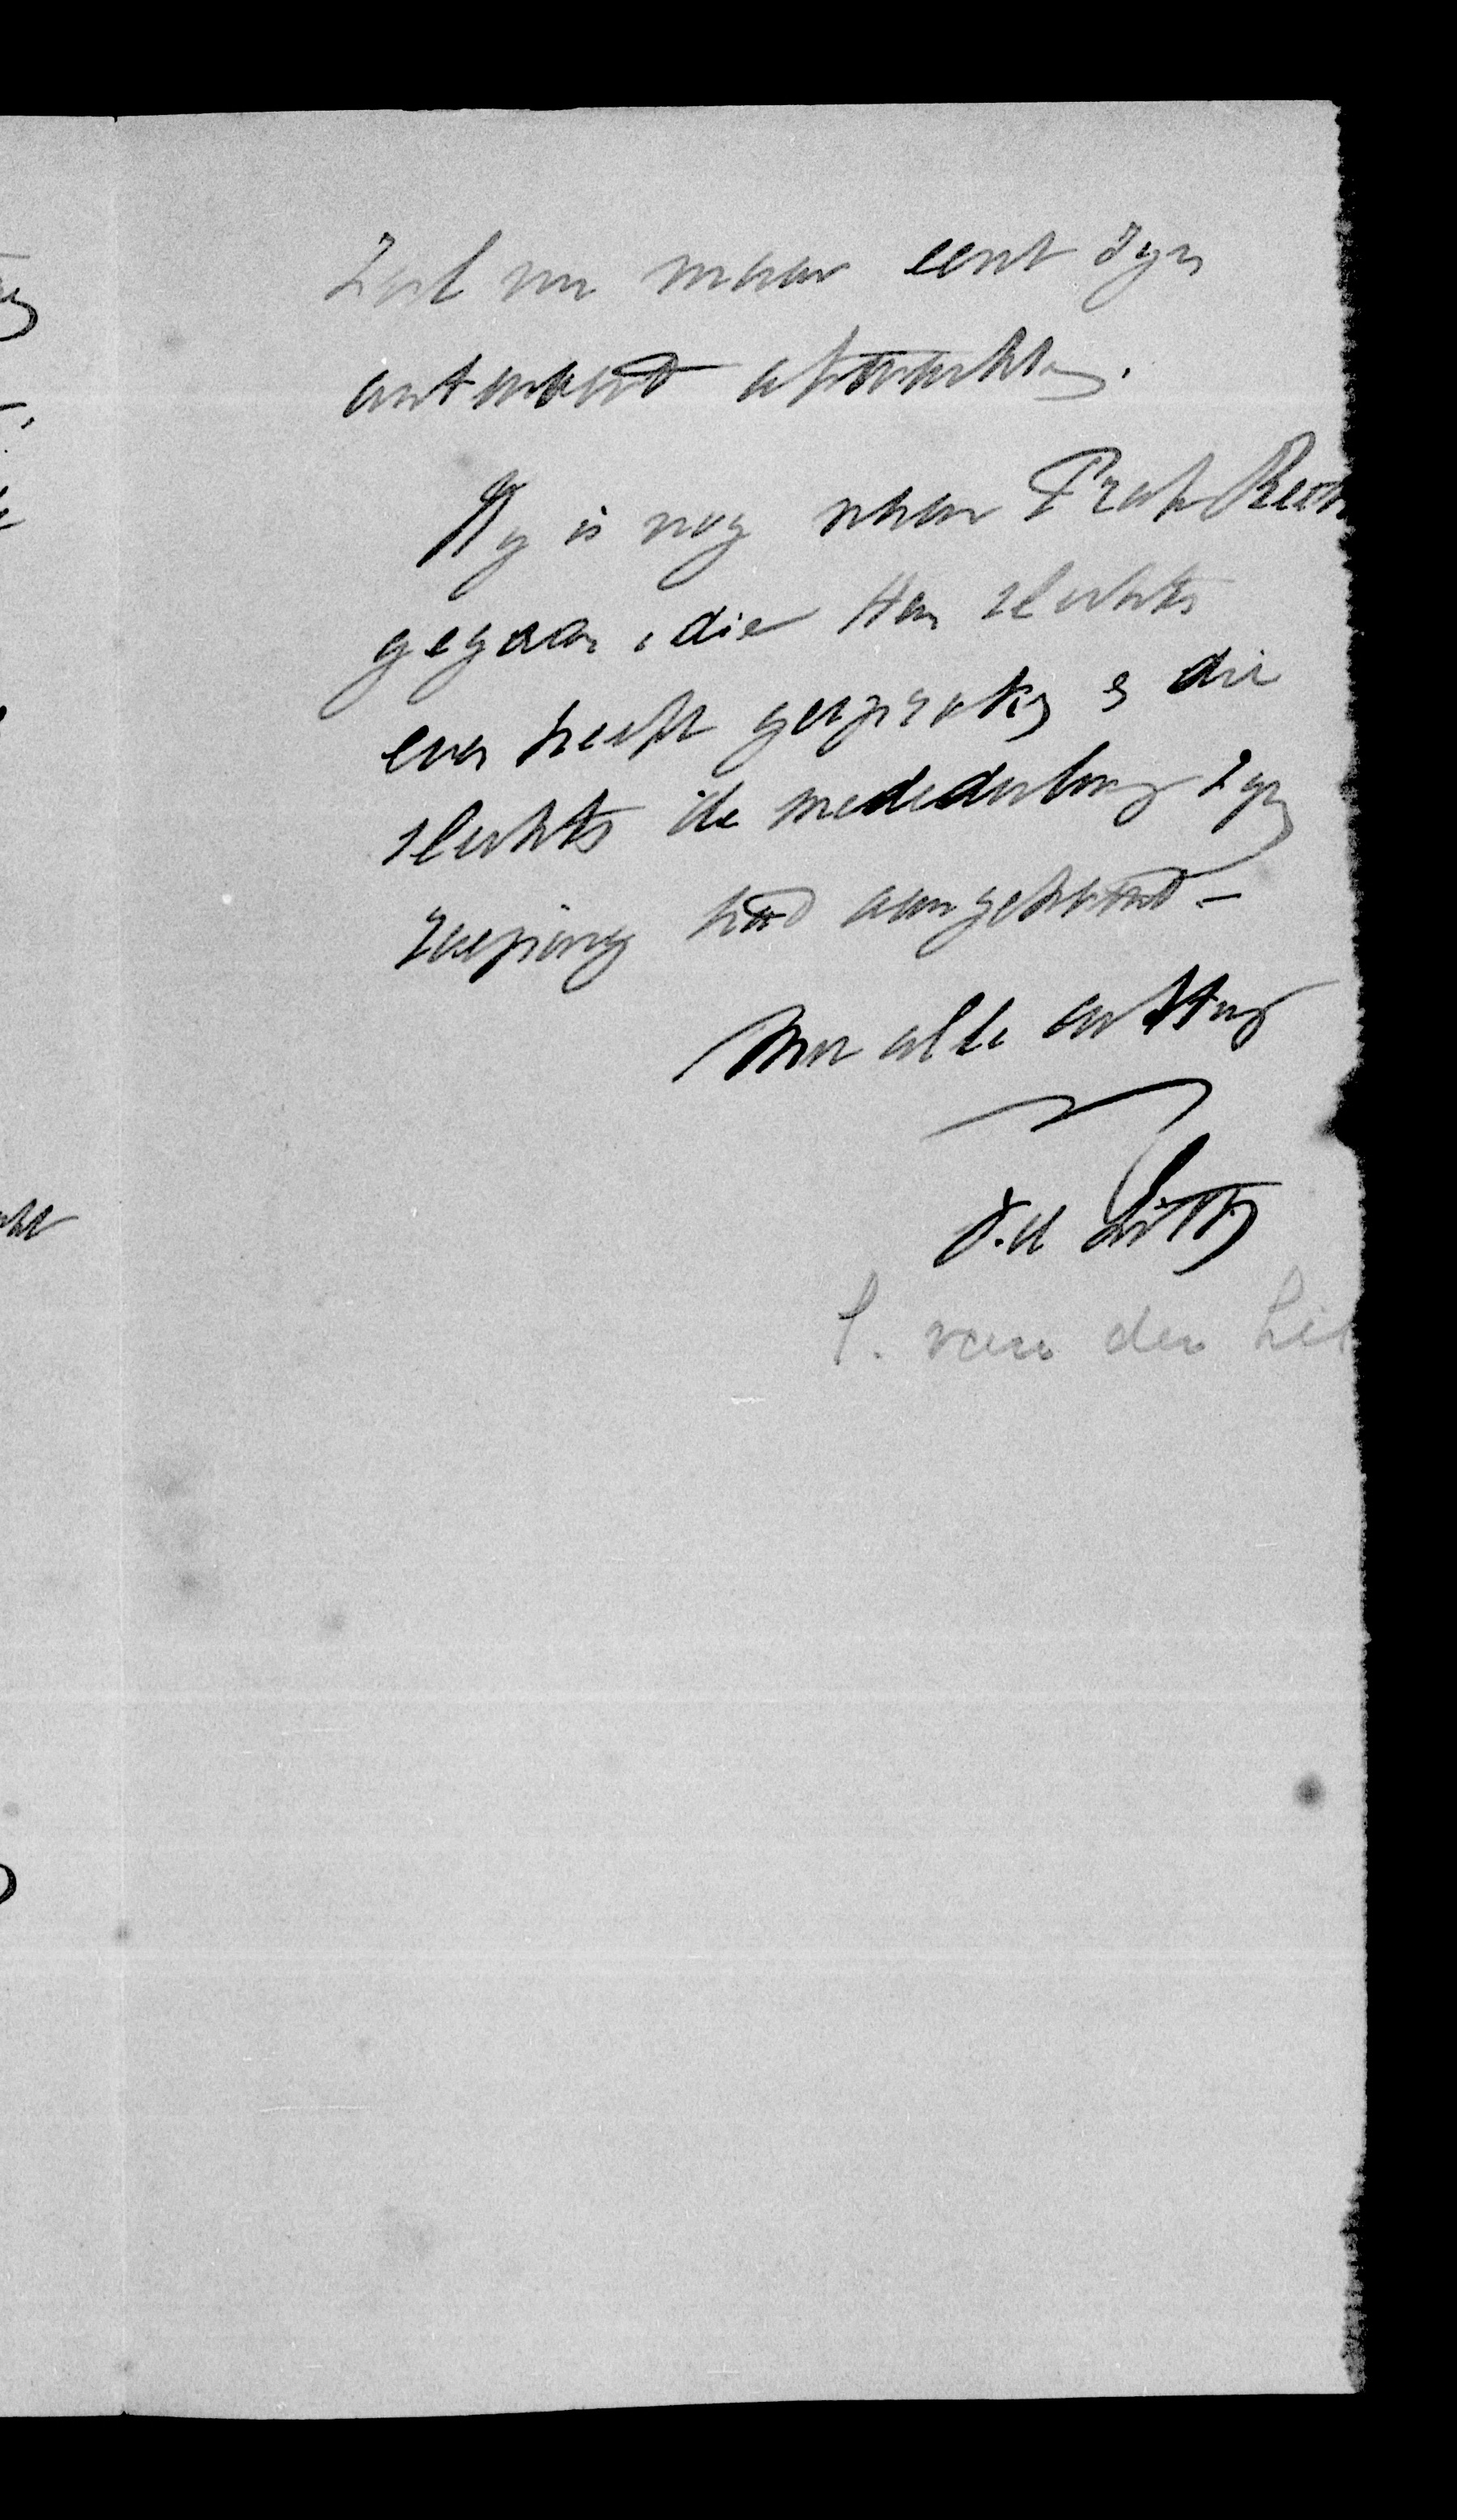 Zal nu maar eerst zyn
antwoord afwachten.
Hy is nog naar Prof.
gegaan, die Hem slechts
even heeft gesproken & die
slechts de mededeeling zyn
roeping had aangehoord –
Met alle achting
v.d. Lith
P. van der Lit